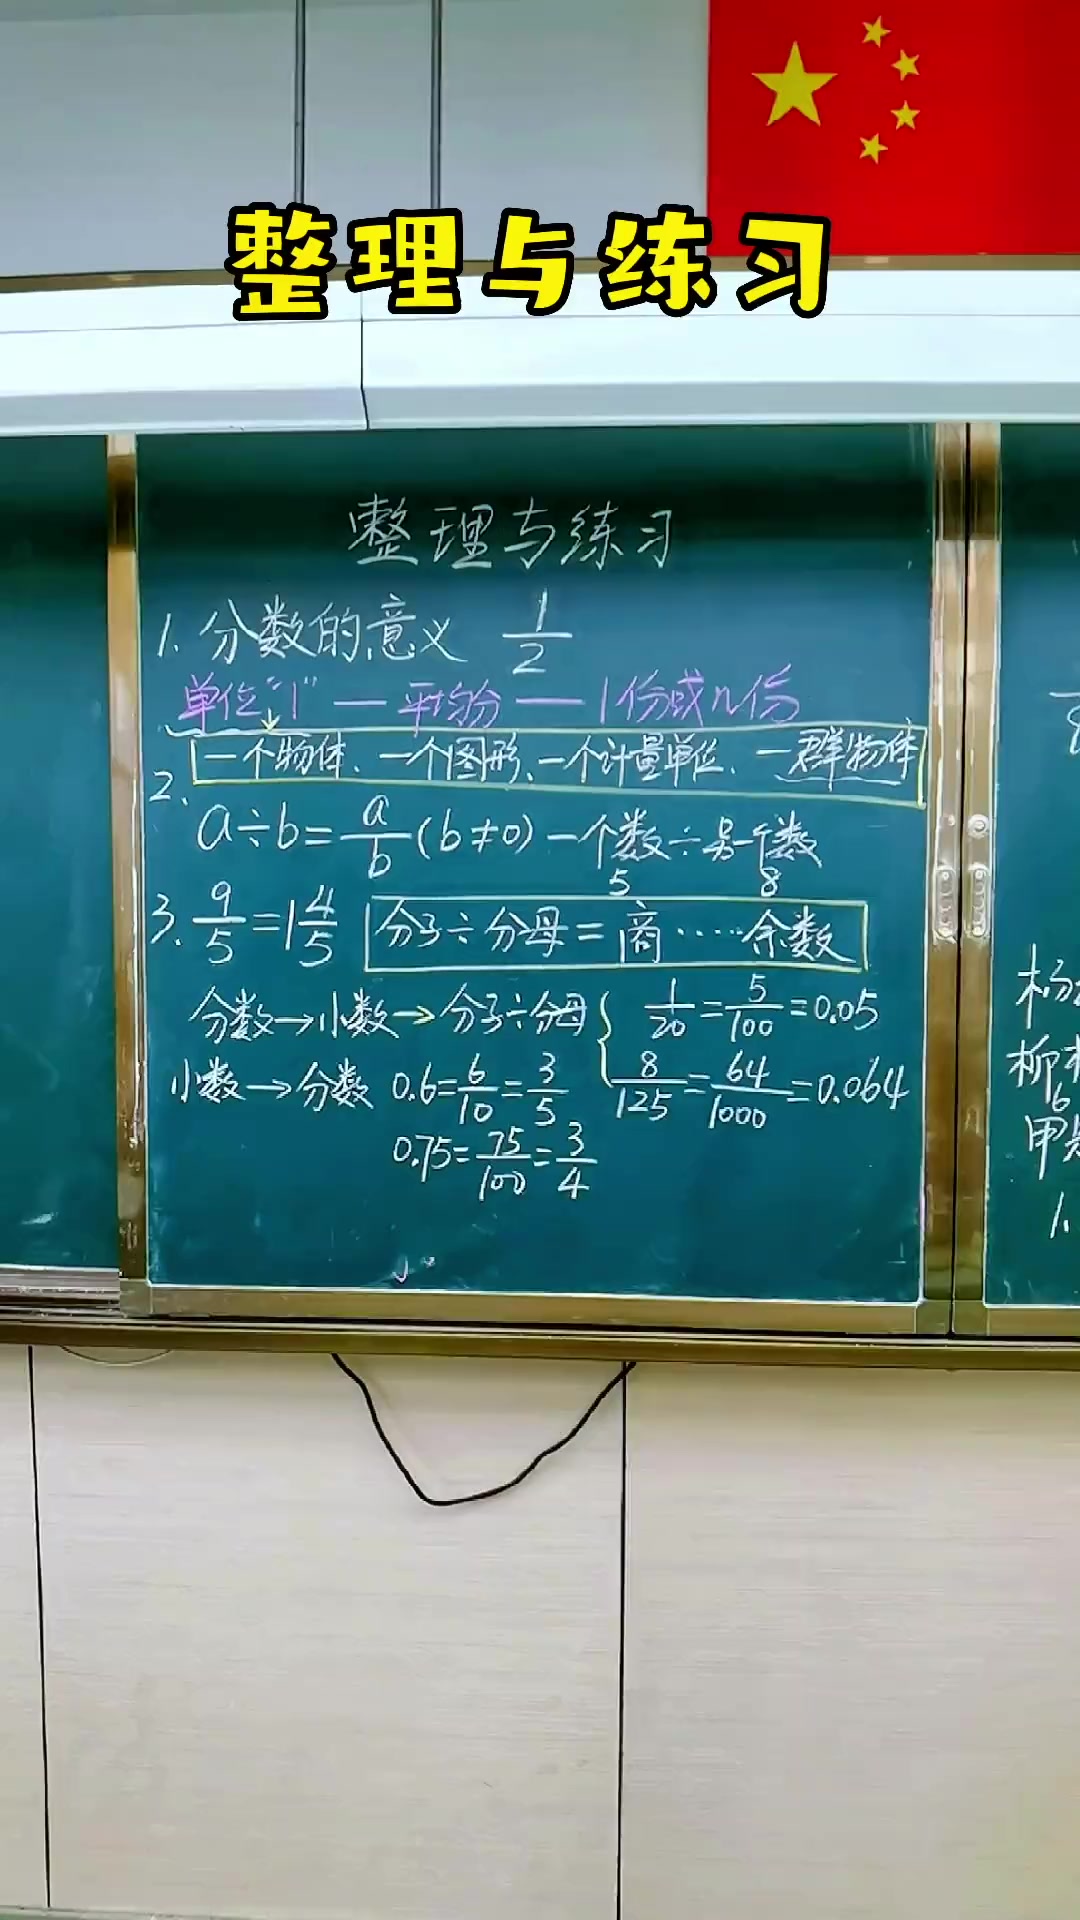 整理与练习
整理与练习
1. 分数的意义 1/2
单位“1” — 平均分 — 1份或几份
一个物体、一个图形、一个计量单位、一群物体
2. a÷b=a/b(b≠0) 一个数÷另一个数
5 8
3. 9/5=1 4/5 分子÷分母=商……余数
分数→小数→分子÷分母 { 1/20=5/100=0.05
8/125=64/1000=0.064
小数→分数 0.6=6/10=3/5
0.75=75/100=3/4
杨
柳
6
甲
1.